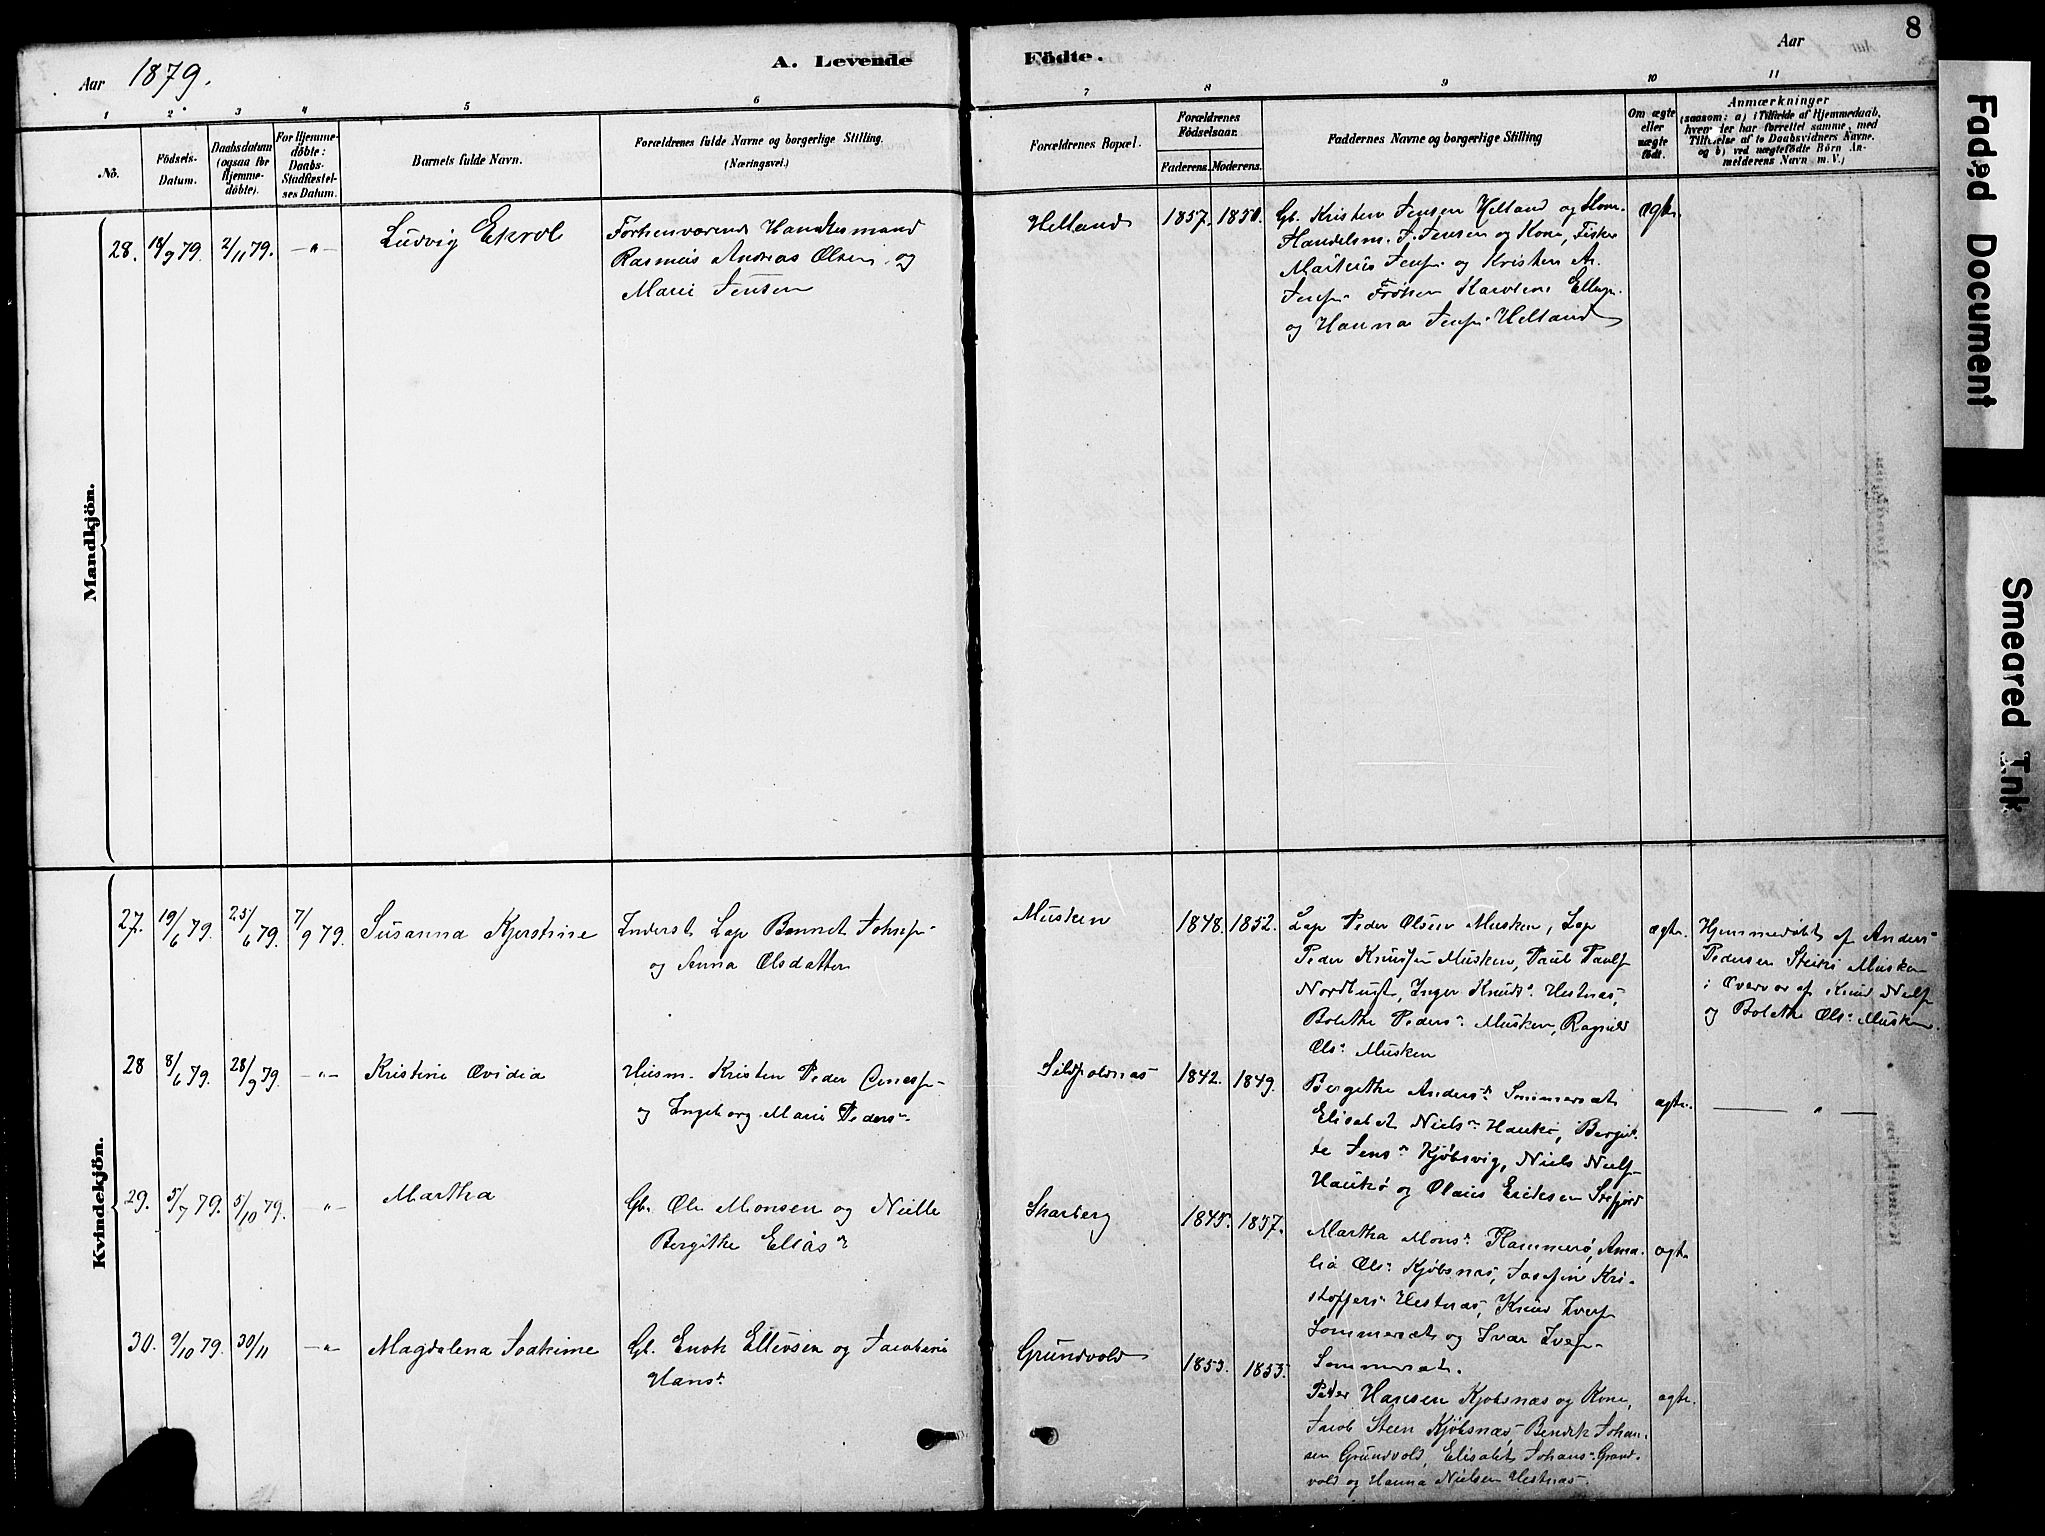 8
Aar 1879.
A. Levende Födte.
Aar
1 2 3 4 5 6 7 8 9 10 11
No.
Födsels-Datum.
Daabsdatum (ogsaa for Hjemmedöbte).
For Hjemmedöbte: Daabs-Stadfæstelses Datum.
Barnets fulde Navn.
Forældrenes fulde Navne og borgerlige Stilling. (Næringsvei.)
Forældrenes Bopæl.
Forældrenes Födselsaar.
Faderens. Moderens.
Faddernes Navne og borgerlige Stilling
Om ægte eller uægte födt.
Anmærkninger
(saasom: a) i Tilfælde af Hjemmedaab, hvem der har forrettet samme, med Tilføielse af to Daabsvidners Navne, og b) ved uægtefødte Börn Anmelderens Navn m. V.)
Mandkjön.
28. 18/9 79. 2/11 79. -"-
Ludvig Ekrol
Forhenværende Handelsmand
Rasmus Andreas Olsen og
Marie Jensen
Helland
1857. 1850.
Gb. Kristen Jensen Helland og Kone
Handelsm. J. Jensen og Kone, Fisker
Martens Jens. og Kristen An.
og Hanna Jens. Helland
ægte.
Kvindekjön.
27. 19/6 79. 25/6 79. 7/9 79.
Susanna Kjerstine
Inderst Lap Bennet Johns.
og Anna Olsdatter
Musken
1848. 1852.
Lap Peder Olsen Musken, Lap
Peder Knudsen Musken, Paul Pauls.
Nordbugt, Inger Knuds. Hestnæs,
Bolethe Peders. Musken, Ragnild
Ols. Musken
ægte.
Hjemmedöbt af Anders
Pedersen Musken
i Overvær af Knud Niels.
og Bolethe Ols. Musken.
28 8/6 79. 28/9 79. -"-
Kristine Ovidia
Husm. Kristen Peder
og Ingeborg Marie Peders.
Sildpolnæs
1842. 1849.
Bergithe Anders. Sommersæt
Elisabet Niels. Haukö, Bergit-
te Jens. Kjöbsvig, Niels Niels.
Haukö og Olaus Eriksen Stefjord
ægte. -"-
29. 5/7 79. 5/10 79. -"-
Martha
Gb. Ole Monsen og Nielle
Bergithe Elias.
Skarberg
1845. 1857.
Martha Mons. Hammerö, Ama-
lia Ols. Kjöbsnæs, Josefine Kri-
stoffers. Hestnæs, Knud Ivers.
Sommersæt og Ivar Ivers.
Sommersæt.
ægte.
30. 9/10 79. 30/11 -"-
Magdalena Joakime
Gb. Enok Ellevsen og Jacobine
Hans.
Grundvold
1853. 1853.
Peder Hansen Kjobsnæs og Kone,
Jacob Steen Kjöbsnæs, Bendik Johan-
sen Grundvold, Elisabet Johans. Grund-
vold og Hanna Nielsen Hestnæs.
ægte.
Faded Document
Smeared Ink